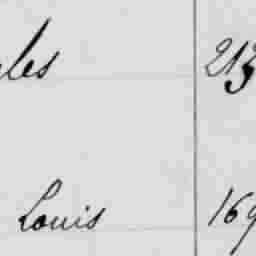 les 213
Louis 169